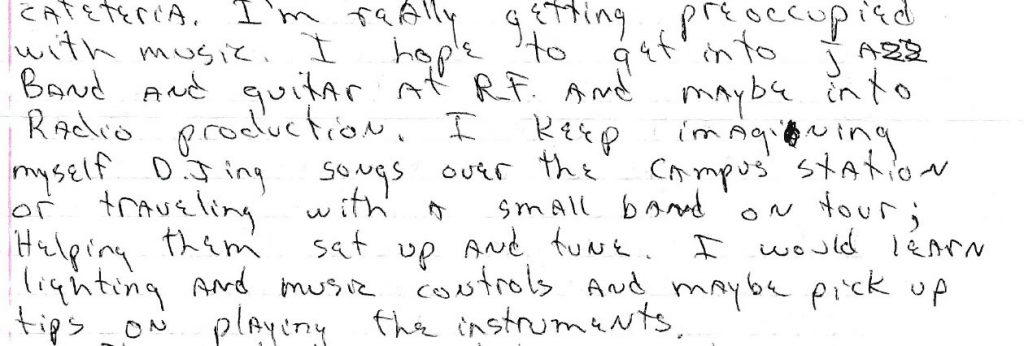 cafeteria. I'm really getting preoccupied
with music. I hope to get into jazz
Band and guitar at R.F. and maybe into
Radio production. I keep imagining
myself D.Jing songs over the campus station
or traveling with a small band on tour;
Helping them set up and tune. I would learn
lighting and music controls and maybe pick up
tips on playing the instruments.